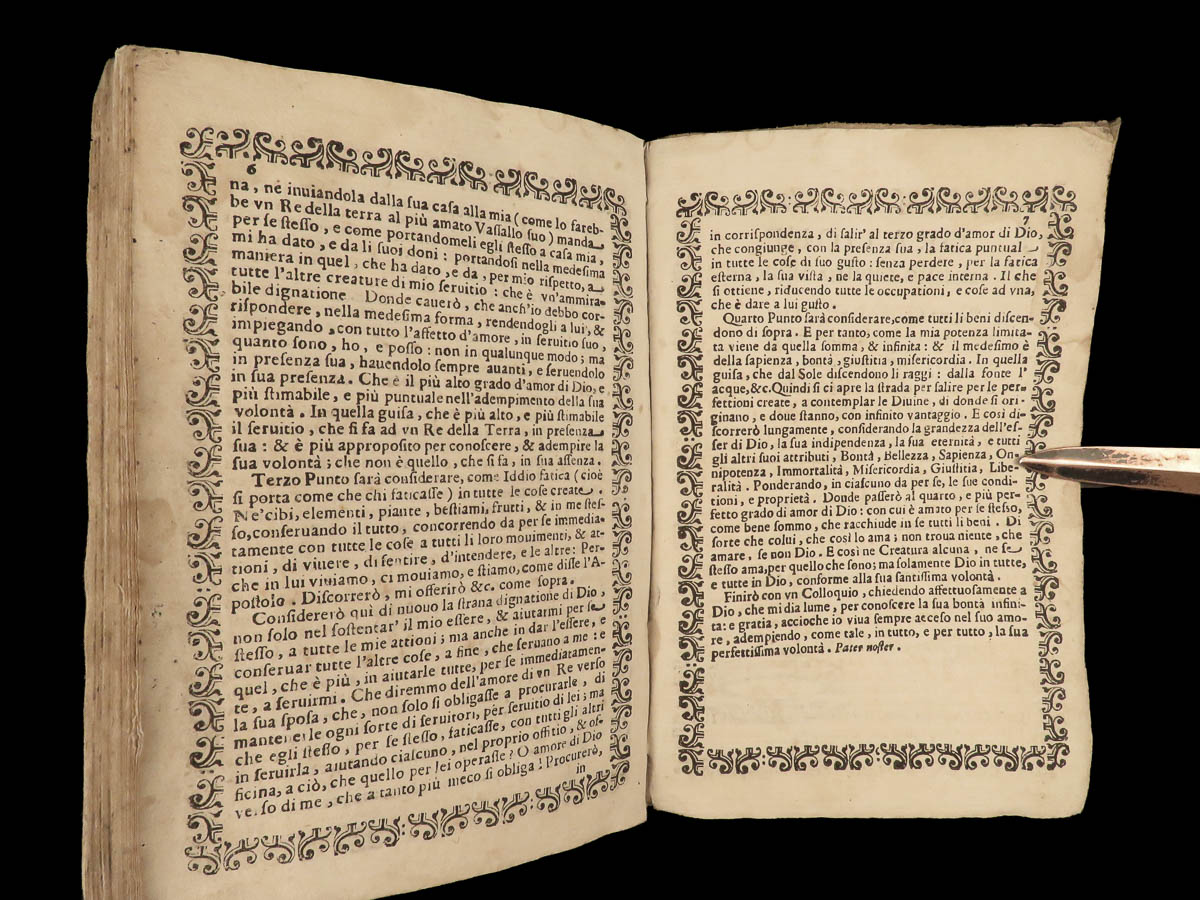 6
na, nè inuiandola dalla sua casa alla mia (come lo fareb-
be vn Re della terra al più amato Vassallo suo) manda
per se stesso, e come portandomeli egli stesso a casa mia,
mi ha dato, e da li suoi doni: portandosi nella medesima
maniera in quel, che ha dato, e da, per mio rispetto, a
tutte l'altre creature di mio seruitio: che è vn'ammira-
bile dignatione. Donde cauerò, che anch'io debbo cor-
rispondere, nella medesima forma, rendendogli a lui, &
impiegando, con tutto l'affetto d'amore, in seruitio suo,
quanto sono, ho, e posso: non in qualunque modo; ma
in presenza sua, hauendolo sempre auanti, e seruendolo
in sua presenza. Che è il più alto grado d'amor di Dio, e
più stimabile, e più puntuale nell'adempimento della sua
volontà. In quella guisa, che è più alto, e più stimabile
il seruitio, che si fa ad vn Re della Terra, in presenza
sua: & è più approposito per conoscere, & adempire la
sua volontà; che non è quello, che si fa, in sua assenza.
Terzo Punto sarà considerare, come Iddio fatica (cioè
si porta come che chi faticasse) in tutte le cose create.
Ne'cibi, elementi, piante, bestiami, frutti, & in me stes-
so, conseruando il tutto, concorrendo da per se immedia-
tamente con tutte le cose a tutti li loro mouimenti, & at-
tioni, di viuere, di sentire, d'intendere, e le altre: Per-
che in lui viuiamo, ci mouiamo, e stiamo, come disse l'A-
postolo. Discorrerò, mi offerirò &c. come sopra.
Considererò quì di nuouo la strana dignatione di Dio,
non solo nel sostentar' il mio essere, & aiutarmi per se
stesso, a tutte le mie attioni; ma anche in dar l'essere, e
conseruar tutte l'altre cose, a fine, che seruano a me: e
quel, che è più, in aiutarle tutte, per se immediatamen-
te, a seruirmi. Che diremmo dell'amore di vn Re verso
la sua sposa, che, non solo si obligasse a procurarle, di
mantenerle ogni sorte di seruitori, per seruitio di lei; ma
che egli stesso, per se stesso, faticasse, con tutti gli altri
in seruirla, aiutando ciascuno, nel proprio offitio, & of-
ficina, a ciò, che quello per lei operasse? O amore di Dio
verso di me, che a tanto più meco si obliga! Procurerò,
in
7
in corrispondenza, di salir' al terzo grado d'amor di Dio,
che congiunge, con la presenza sua, la fatica puntual
in tutte le cose di suo gusto: senza perdere, per la fatica
esterna, la sua vista, ne la quiete, e pace interna. Il che
si ottiene, riducendo tutte le occupationi, e cose ad vna,
che è dare a lui gusto.
Quarto Punto sarà considerare, come tutti li beni discen-
dono di sopra. E per tanto, come la mia potenza limita-
ta viene da quella somma, & infinita: & il medesimo è
della sapienza, bontà, giustitia, misericordia. In quella
guisa, che dal Sole discendono li raggi: dalla fonte l'
acque, &c. Quindi si ci apre la strada per salire per le per-
fettioni create, a contemplar le Diuine, di donde si ori-
ginano, e doue stanno, con infinito vantaggio. E così di-
scorrerò lungamente, considerando la grandezza dell'es-
ser di Dio, la sua indipendenza, la sua eternità, e tutti
gli altri suoi attributi, Bontà, Bellezza, Sapienza, On-
nipotenza, Immortalità, Misericordia, Giustitia, Libe-
ralità. Ponderando, in ciascuno da per se, le sue condi-
tioni, e proprietà. Donde passerò al quarto, e più per-
fetto grado di amor di Dio: con cui è amato per se stesso,
come bene sommo, che racchiude in se tutti li beni. Di
sorte che colui, che così lo ama; non troua niente, che
amare, se non Dio. E così ne Creatura alcuna, ne se
stesso ama, per quello che sono; ma solamente Dio in tutte,
e tutte in Dio, conforme alla sua santissima volontà.
Finirò con vn Colloquio, chiedendo affettuosamente a
Dio, che mi dia lume, per conoscere la sua bontà infini-
ta: e gratia, accioche io viua sempre acceso nel suo amo-
re, adempiendo, come tale, in tutto, e per tutto, la sua
perfettissima volontà. Pater noster.